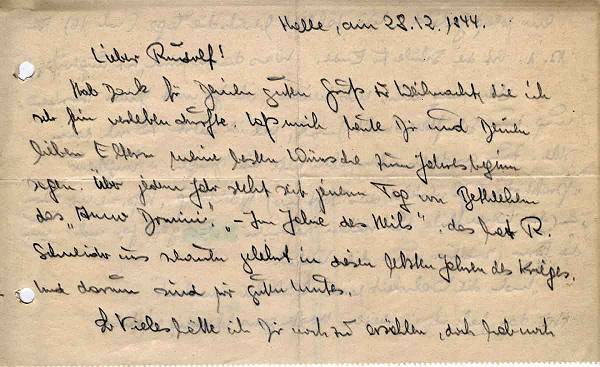 Halle, am 28.12.1944.
Lieber Rudolf!
Hab Dank für Deinen guten Gruß zu Weihnacht, die ich
sehr fein verleben durfte. Laß mich heute Dir und Deinen
lieben Eltern meine besten Wünsche zum Jahresbeginn
sagen. Über jedem Jahr steht seit jenem Tag von Bethlehem
das „Anno Domini", „– Im Jahre des Heils". das hat R.
Schneider uns gelehrt in diesen letzten Jahren des Krieges.
Und darum sind wir guten Mutes.
So Vieles hätte ich Dir noch zu erzählen, doch hab noch